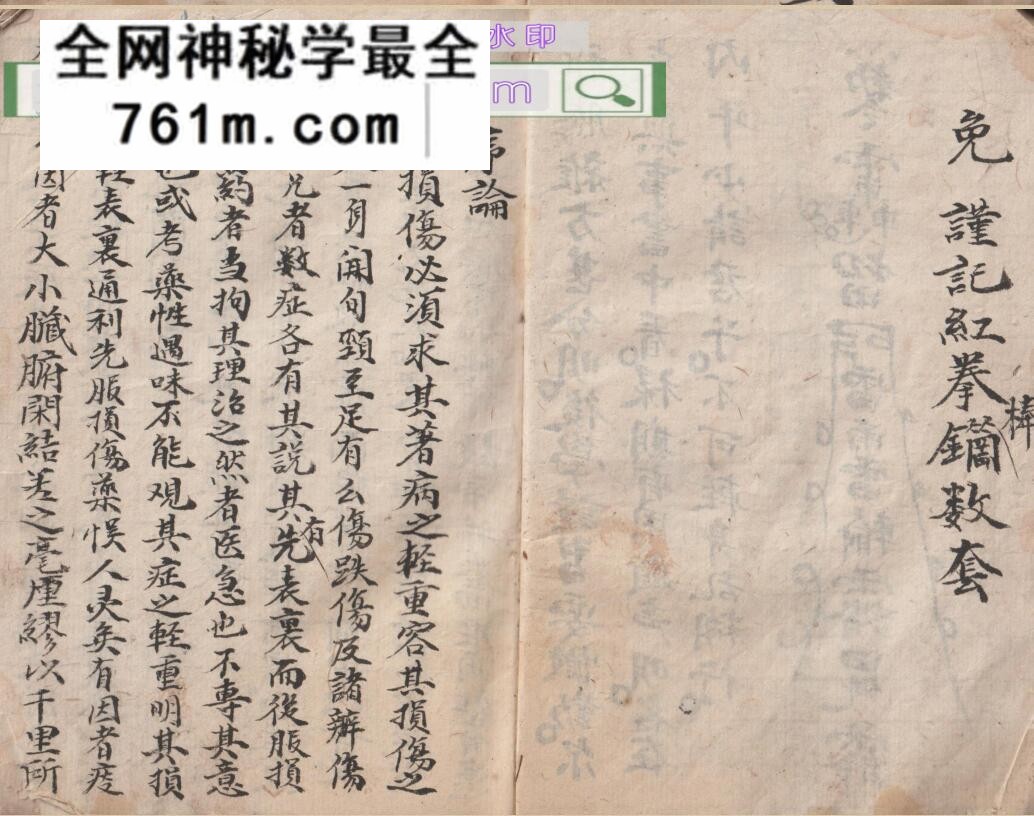 全网神秘学最全
761m.com
水印
m
免 謹記紅拳鐧数套
棒
序論
損傷必須求其著病之軽重容其損傷之
一身開句頸至足有么傷跌傷及諸辦傷
兄者数症各有其説其先有表裏而後服損
药者当拘其理治之然者医急也不專其意
也或考薬性遇味不能观其症之軽重明其損
軽表裏通利先服損傷薬悮人灵矣有因者痰
因者大小臓腑閑結差之毫厘繆以千里所